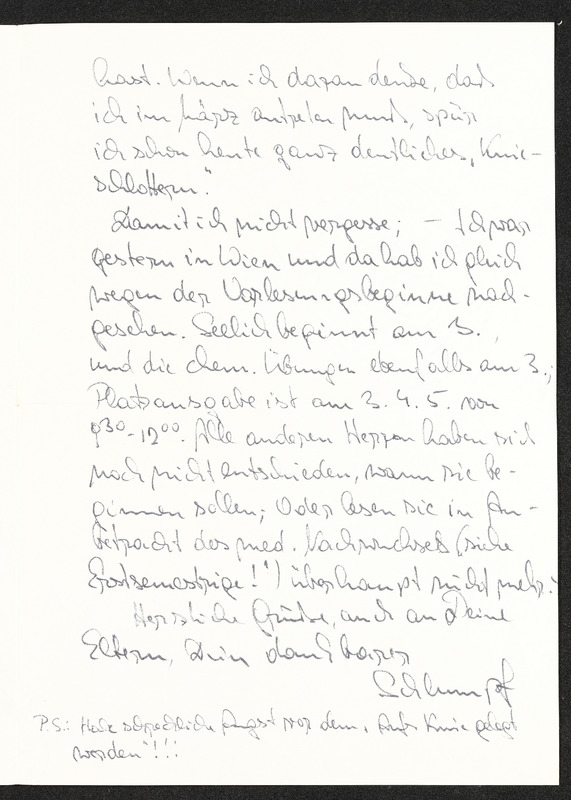 hast. Wenn ich daran denke, daß
ich im März antreten muß, spür
ich schon heute ganz deutliches „Knie-
schlottern".
Damit ich nicht vergesse; – Ich war
gestern in Wien und da hab ich gleich
wegen der Vorlesungsbeginne nach-
gesehen. Seelich beginnt am 3.,
und die chem. Übungen ebenfalls am 3.;
Platzausgabe ist am 3. 4. 5. von
9³⁰-12⁰⁰. Alle anderen Herren haben sich
noch nicht entschieden, wann sie be-
ginnen sollen; Oder lesen sie in An-
betracht des med. Nachwuchses (siehe
Erstsemestrige!") überhaupt nicht mehr?
Herzliche Grüße, auch an Deine
Eltern, Dein dankbarer
Schlumpf
P.S.: Habe schreckliche Angst vor dem „Aufs Knie gelegt
werden"!!!